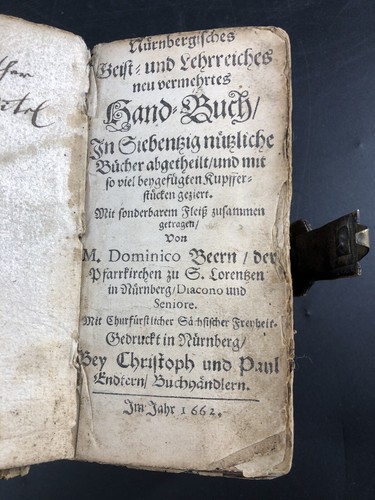 Nürnbergisches
Geist- und Lehrreiches
neu vermehrtes
Hand-Buch/
In Siebentzig nützliche
Bücher abgetheilt/und mit
so viel beygefügten Kupffer-
stücken geziert.
Mit sonderbarem Fleiß zusammen
getragen/
Von
M. Dominico Beern/ der
Pfarrkirchen zu S. Lorentzen
in Nürnberg/Diacono und
Seniore.
Mit Churfürstlicher Sächsischer Freyheit.
Gedruckt in Nürnberg/
Bey Christoph und Paul
Endtern/ Buchhändlern.
Im Jahr 1662.